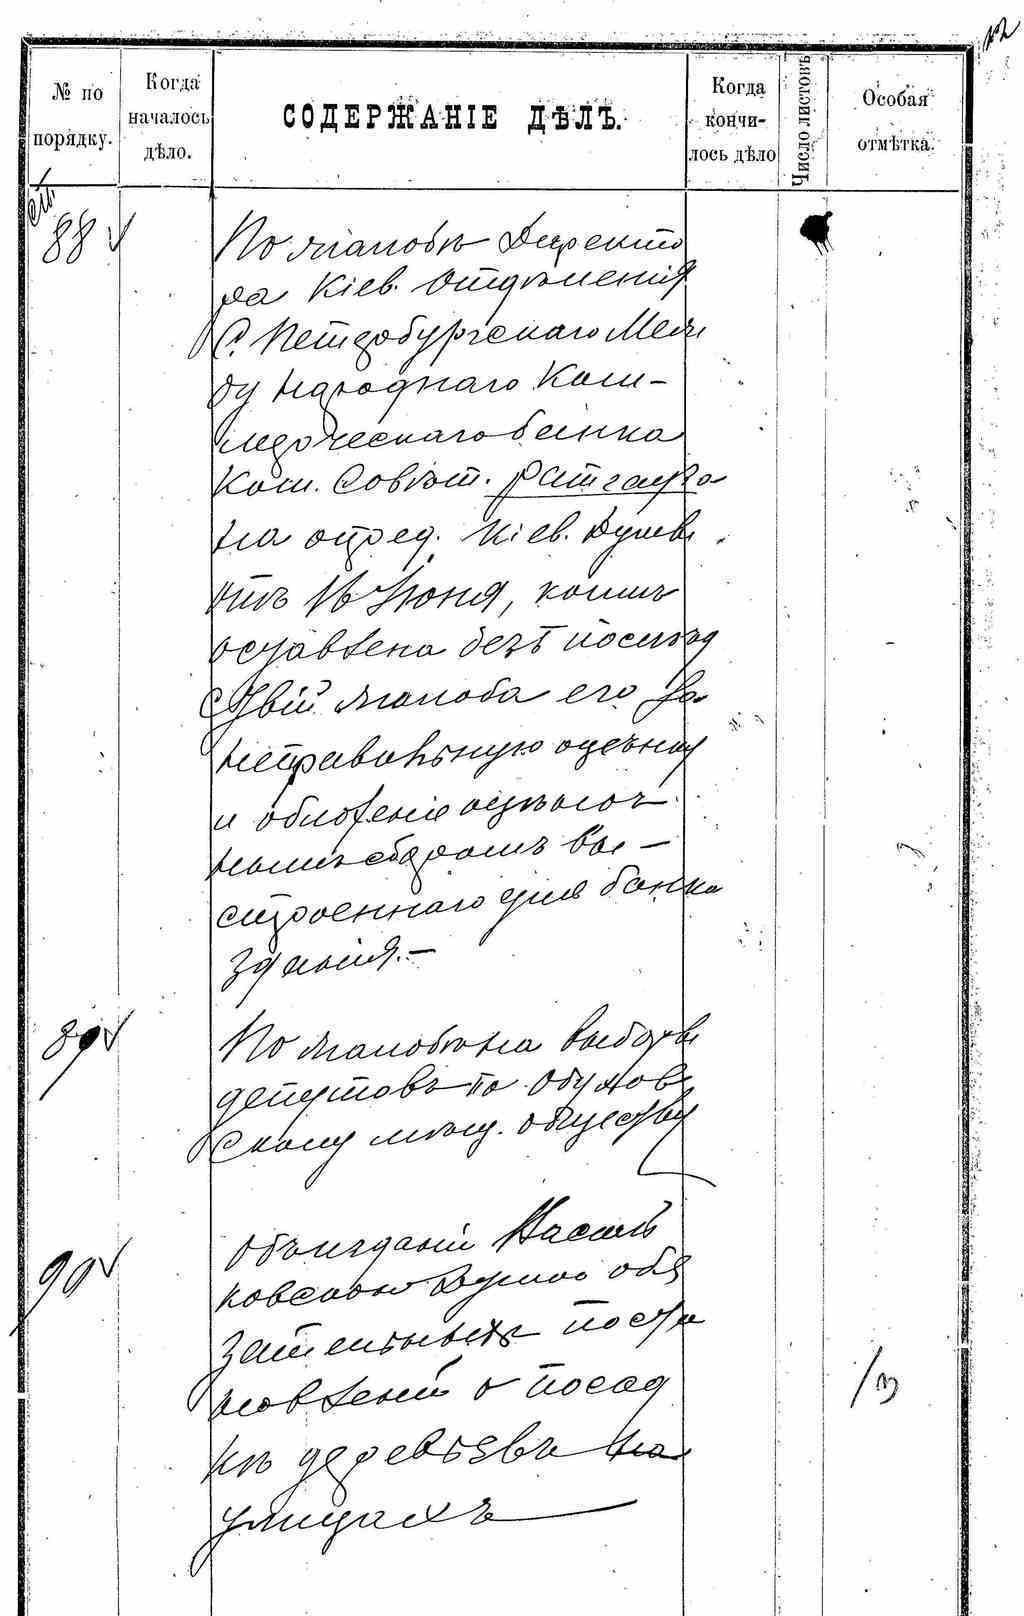 12
№ по порядку.
Когда началось дѣло.
СОДЕРЖАНІЕ ДѢЛЪ.
Когда кончилось дѣло
Число листовъ
Особая отмѣтка.
88
По жалобѣ Директо
ра Кіев. Отдѣленія
С. Петербургскаго Меж
ду народнаго Ком-
мерческаго банка
Ком. Совѣт.
на опред. Кіев. Думы
отъ 16 Іюня, коимъ
оставлена безъ послѣд
ствій жалоба его за
неправильную оцѣнку
и обложеніе оцѣноч
нымъ сборомъ вы-
строеннаго для банка
зданія.-
89
По жалобѣ на выборы
депутатовъ по Обухов
скому мѣщ. обществу
90
Объ изданіи Василь
ковскою Думою обя
зательныхъ поста
новленій о посад
кѣ деревьевъ на
улицахъ